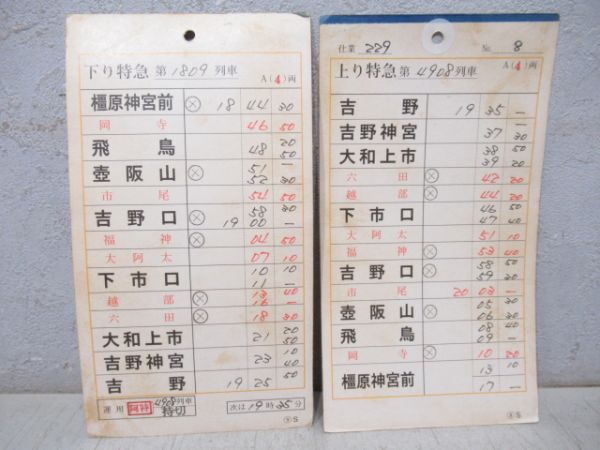 下り特急 第1809列車 A(4)両
橿原神宮前 ⊗ 18 44 30
岡寺 46 50
飛鳥 48 20 50
壺阪山 ⊗ 51 — 52 30
市尾 54 50
吉野口 ⊗ 58 30 19 00 —
福神 ⊗ 04 50
大阿太 07 10
下市口 10 10 11 —
越部 ⊗ 13 40 16 —
六田 ⊗ 18 30
大和上市 21 20 50
吉野神宮 23 10 40
吉野 19 25 50
運用 阿特 4908列車 特切 次は19時35分
Ⓢ S
仕業 229 No. 8
上り特急 第4908列車 A(4)両
吉野 19 35 —
吉野神宮 37 — 30
大和上市 38 50 39 20
六田 ⊗ 42 20
越部 ⊗ 44 20
下市口 46 50 47 40
大阿太 51 10
福神 ⊗ 53 40
吉野口 ⊗ 58 50 59 30
市尾 20 03 —
壺阪山 ⊗ 05 30 06 30
飛鳥 08 40 09 —
岡寺 ⊗ 10 20
橿原神宮前 13 10 17 —